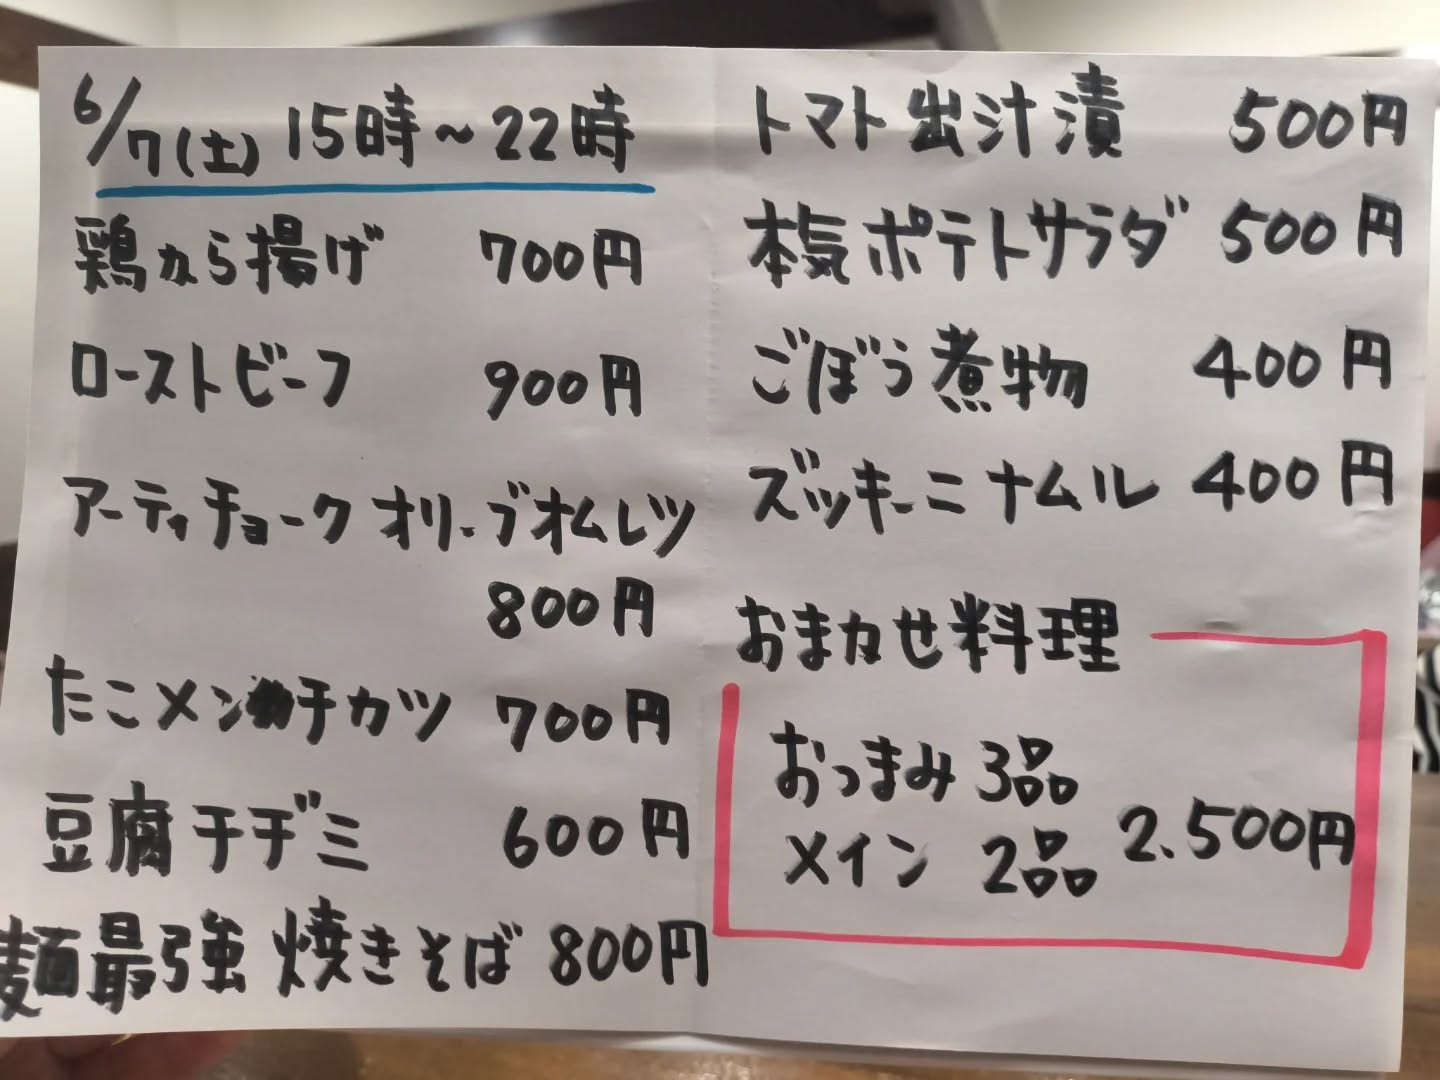 6/7(土) 15時~22時
鶏から揚げ 700円
ローストビーフ 900円
アーティチョークオリーブオムレツ
800円
たこメンチカツ 700円
豆腐チヂミ 600円
麺最強 焼きそば 800円
トマト出汁漬 500円
本気ポテトサラダ 500円
ごぼう煮物 400円
ズッキーニナムル 400円
おまかせ料理
おつまみ 3品
メイン 2品 2.500円